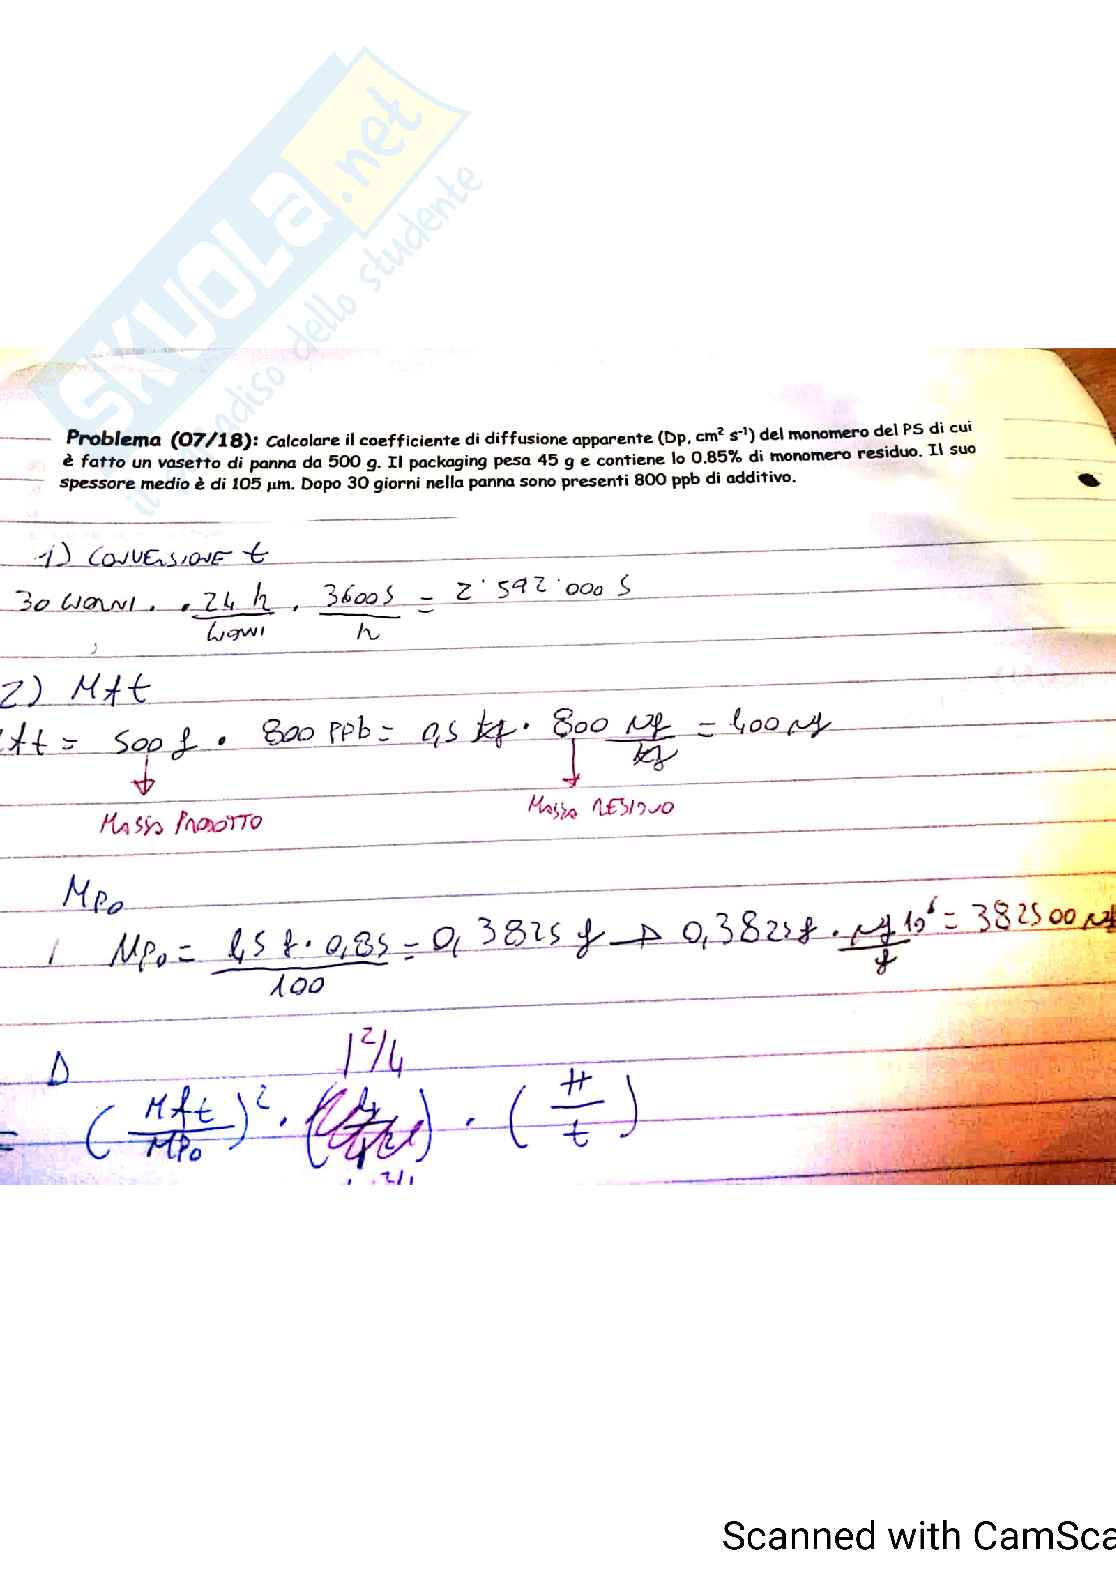 SKUOLA.net
il paradiso dello studente
Problema (07/18): Calcolare il coefficiente di diffusione apparente (Dp, cm² s⁻¹) del monomero del PS di cui
è fatto un vasetto di panna da 500 g. Il packaging pesa 45 g e contiene lo 0.85% di monomero residuo. Il suo
spessore medio è di 105 µm. Dopo 30 giorni nella panna sono presenti 800 ppb di additivo.
1) CONVERSIONE t
30 GIORNI · 24 h / GIORNI · 3600 S / h = 2'592'000 S
2) MFt
Ft = 500 g · 800 ppb = 0,5 kg · 800 µg / kg = 400 µg
MASSA PRODOTTO
MASSA RESIDUO
MP₀
MP₀ = 45 g · 0,85 / 100 = 0,3825 g → 0,3825 g · µg 10⁶ / g = 382500 µg
D
l²/4
= (MFt / MP₀)² · ( ) · (π / t)
Scanned with CamSca